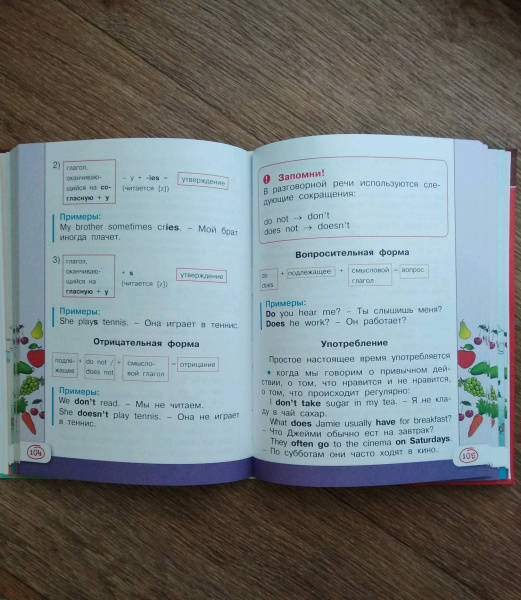 2)
глагол,
оканчиваю-
щийся на со-
гласную + у
– у + -ies =
[читается [z]]
утверждение
Примеры:
My brother sometimes cries. – Мой брат
иногда плачет.
3)
глагол,
оканчиваю-
щийся на
гласную + у
+ s
[читается [z]]
утверждение
Примеры:
She plays tennis. – Она играет в теннис.
Отрицательная форма
подле-
жащее
+
do not /
does not
+
смысло-
вой глагол
= отрицание
Примеры:
We don't read. – Мы не читаем.
She doesn't play tennis. – Она не играет
в теннис.
104
! Запомни!
В разговорной речи используются сле-
дующие сокращения:
do not → don't
does not → doesn't
Вопросительная форма
do
does
+ подлежащее +
смысловой
глагол
= вопрос
Примеры:
Do you hear me? – Ты слышишь меня?
Does he work? – Он работает?
Употребление
Простое настоящее время употребляется
• когда мы говорим о привычном дей-
ствии, о том, что нравится и не нравится,
о том, что происходит регулярно:
I don't take sugar in my tea. – Я не кла-
ду в чай сахар.
What does Jamie usually have for breakfast?
– Что Джейми обычно ест на завтрак?
They often go to the cinema on Saturdays.
– По субботам они часто ходят в кино.
105